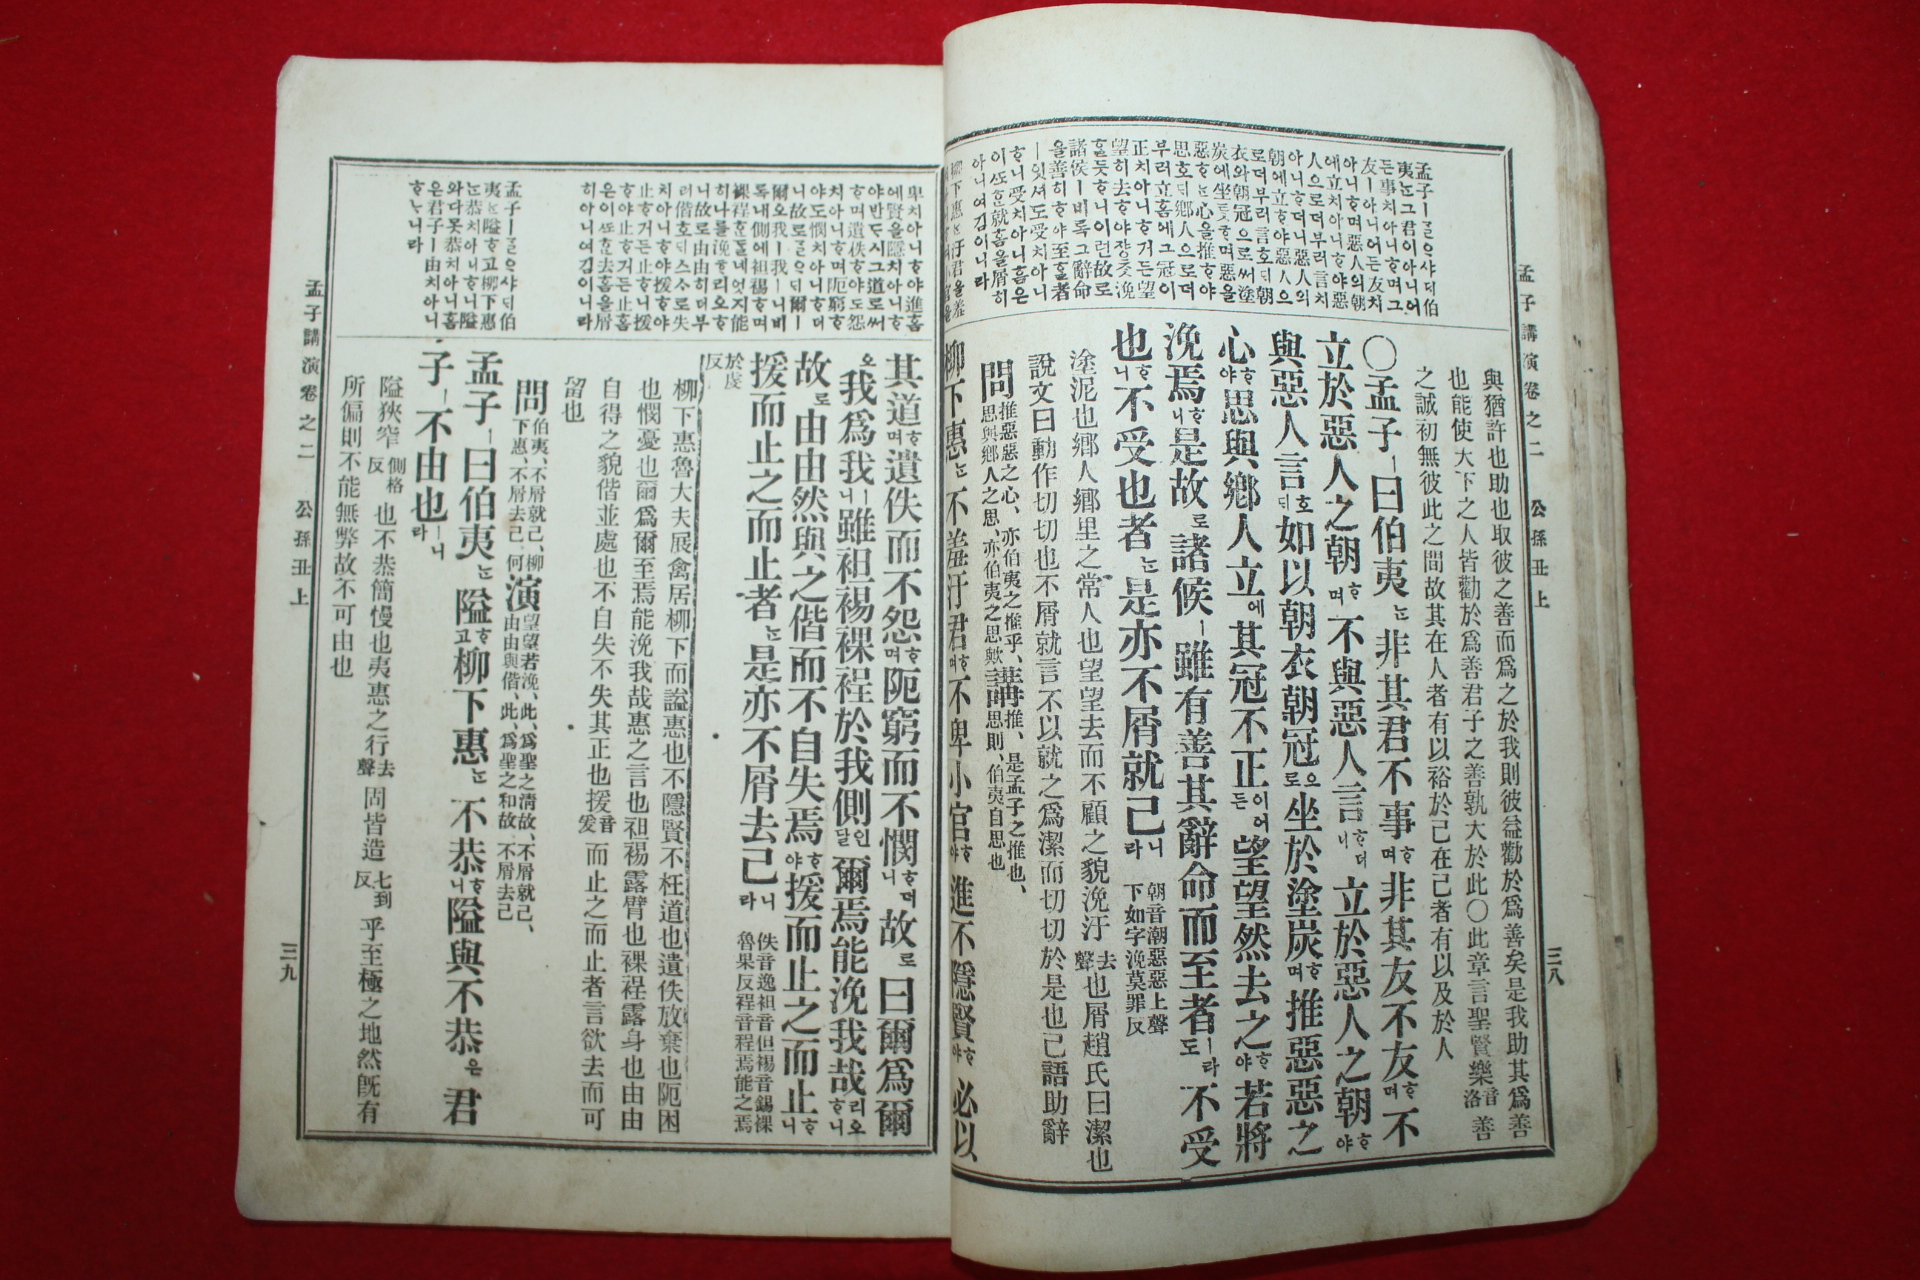 孟子講演卷之二 公孫丑上 三八
孟子ㅣᄀᆞᆯᄋᆞ샤ᄃᆡ伯
夷ᄂᆞᆫ그君이아니어
든事치아니ᄒᆞ며그
友ㅣ아니어든友치
아니ᄒᆞ며惡人의朝
애立치아니ᄒᆞ야惡
人으로더부러言치
아니ᄒᆞ더니惡人의
朝애立ᄒᆞ야惡人으
로더부러言호ᄃᆡ朝
衣와朝冠으로써塗
炭에坐ᄐᆞᆺᄒᆞ며惡을
惡ᄒᆞᄂᆞᆫ心을推ᄒᆞ야
思호ᄃᆡ鄕人으로더
부러立홈에그冠이
正치아니ᄒᆞ거든望
望히去ᄒᆞ야쟝ᄎᆞᆺ浼
ᄒᆞᆯ듯ᄒᆞ니이런故로
諸侯ㅣ비록그辭命
을善히ᄒᆞ야至ᄒᆞᆯ者
ㅣ잇셔도受치아니
ᄒᆞ니受치아니홈은
이ᄯᅩᄒᆞᆫ就홈을屑히
아니여김이니라
柳下惠ᄂᆞᆫ汙君을羞
與猶許也助也取彼之善而爲之於我則彼益勸於爲善矣是我助其爲善
也能使天下之人皆勸於爲善君子之善孰大於此〇此章言聖賢樂音洛善
之誠初無彼此之間故其在人者有以裕於己在己者有以及於人
〇孟子ㅣ曰伯夷ᄂᆞᆫ非其君不事ᄒᆞ며非其友不友ᄒᆞ며不
立於惡人之朝ᄒᆞ며不與惡人言ᄒᆞ더니立於惡人之朝ᄒᆞ야
與惡人言호ᄃᆡ如以朝衣朝冠으로坐於塗炭ᄒᆞ며推惡惡之
心ᄒᆞ야思與鄕人立에其冠不正이어든望望然去之ᄒᆞ야若將
浼焉ᄒᆞ니是故로諸侯ㅣ雖有善其辭命而至者ㅣ라도不受
也ᄒᆞ니不受也者ᄂᆞᆫ是亦不屑就已니라朝音潮惡惡上聲下如字浼莫罪反
塗泥也鄕人鄕里之常人也望望去而不顧之貌浼汙去聲也屑趙氏曰潔也
說文曰動作切切也不屑就言不以就之爲潔而切切於是也已語助辭
問推惡惡之心、亦伯夷之推乎、思與鄕人之思、亦伯夷之思歟講推、是孟子之推也、思則、伯夷自思也
柳下惠ᄂᆞᆫ不羞汙君ᄒᆞ며不卑小官ᄒᆞ야進不隱賢ᄒᆞ야必以
卑치아니ᄒᆞ야進홈
에賢을隱치아니ᄒᆞ
야반ᄃᆞ시그道로써
ᄒᆞ며遺佚ᄒᆞ야도怨
치아니ᄒᆞ며阨窮ᄒᆞ
야도憫치아니ᄒᆞ더
니故로ᄀᆞᆯᄋᆞᄃᆡ爾ㅣ
爾오我ㅣ我ㅣ니비
록내側에袒裼ᄒᆞ며
裸裎ᄒᆞᆫᄃᆞᆯ네엇지能
히나를浼ᄒᆞ리오ᄒᆞ
니故로由由히더부
러偕호ᄃᆡ스스로失
치아니ᄒᆞ야援ᄒᆞ야
止ᄒᆞ거든止ᄒᆞ니援
ᄒᆞ야止ᄒᆞ거든止홈
은이ᄯᅩᄒᆞᆫ去홈을屑
히아니여김이니라
孟子ㅣᄀᆞᆯᄋᆞ샤ᄃᆡ伯
夷ᄂᆞᆫ隘ᄒᆞ고柳下惠
ᄂᆞᆫ恭치아니ᄒᆞ니隘
와다못恭치아니홈
은君子ㅣ由치아니
ᄒᆞᄂᆞ니라
其道ᄒᆞ며遺佚而不怨ᄒᆞ며阨窮而不憫ᄒᆞ더니故로曰爾爲爾
오我爲我ㅣ니雖袒裼裸裎於我側인ᄃᆞᆯ爾焉能浼我哉리오ᄒᆞ니
故로由由然與之偕而不自失焉ᄒᆞ야援而止之而止ᄒᆞ니
援而止之而止者ᄂᆞᆫ是亦不屑去已니라佚音逸袒音但裼音錫裸魯果反裎音程焉能之焉
於虔反
柳下惠魯大夫展禽居柳下而諡惠也不隱賢不枉道也遺佚放棄也阨困
也憫憂也爾爲爾至焉能浼我哉惠之言也袒裼露臂也裸裎露身也由由
自得之貌偕並處也不自失不失其正也援音爰而止之而止者言欲去而可
留也
問伯夷、不屑就已、柳下惠、不屑去已、何演望望若浼、此、爲聖之淸故、不屑就已、由由與偕、此、爲聖之和故、不屑去已
孟子ㅣ曰伯夷ᄂᆞᆫ隘ᄒᆞ고柳下惠ᄂᆞᆫ不恭ᄒᆞ니隘與不恭은君
子ㅣ不由也ㅣ니라
隘狹窄側格反也不恭簡慢也夷惠之行去聲固皆造七到反乎至極之地然旣有
所偏則不能無弊故不可由也
孟子講演卷之二 公孫丑上 三九